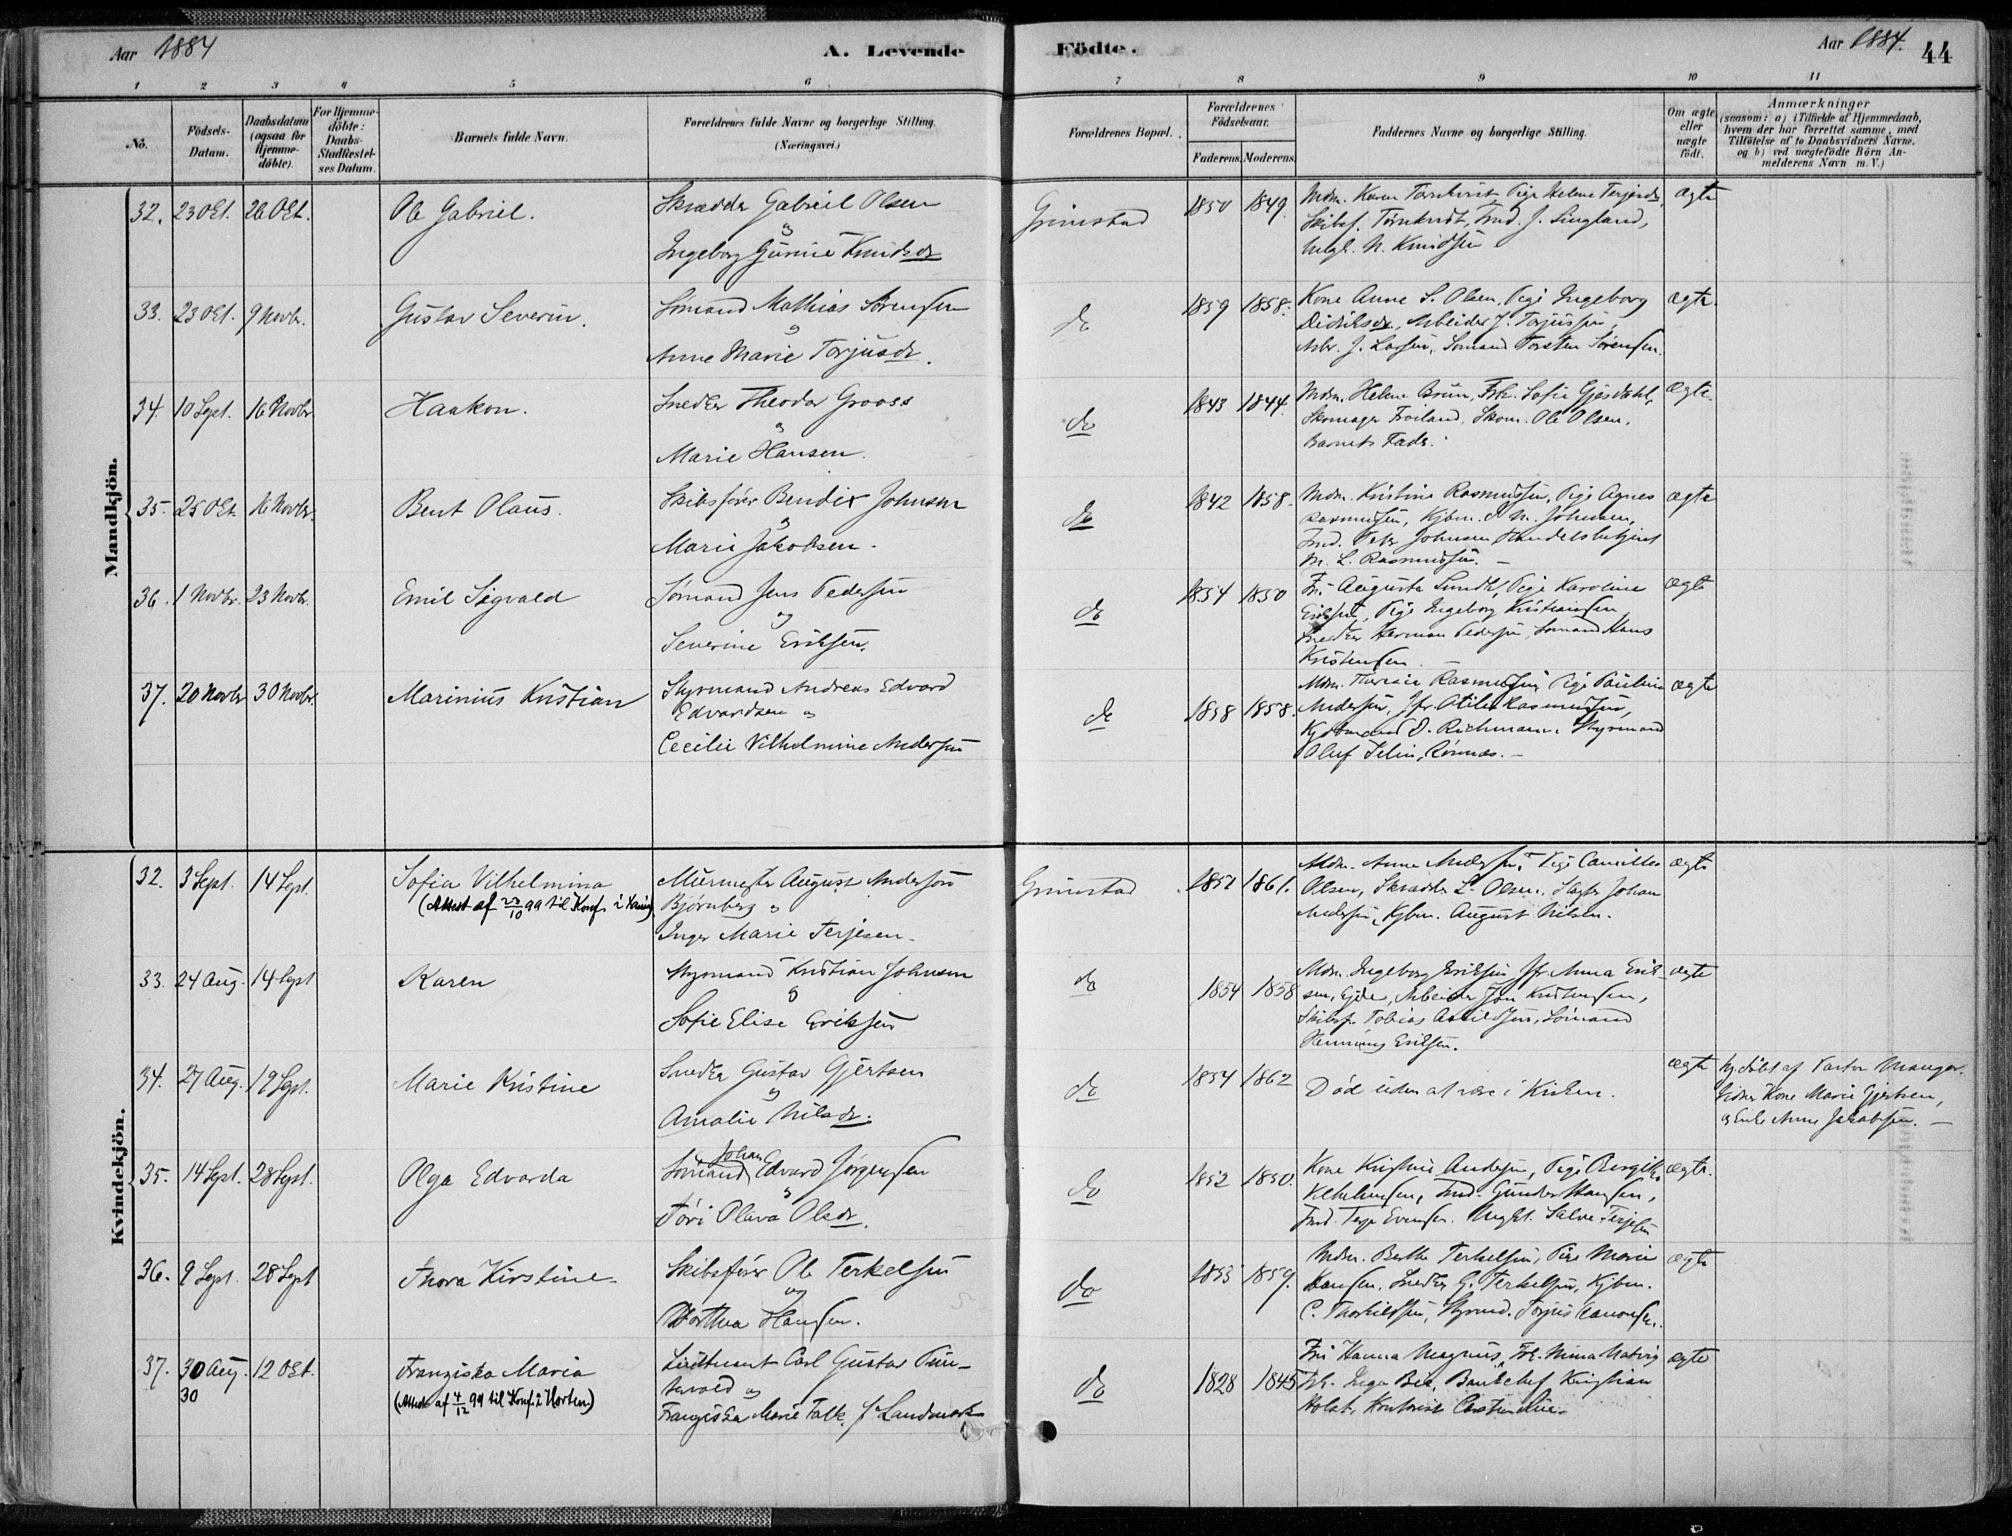 Aar 1884
A. Levende
Födte.
Aar 1884.
44
1 2 3 4 5 6 7 8 9 10 11
No.
Födsels-Datum.
Daabsdatum (ogsaa for Hjemmedöbte).
For Hjemmedöbte: Daabs-Stadfæstelses Datum.
Barnets fulde Navn.
Forældrenes fulde Navne og borgerlige Stilling. (Næringsvei.)
Forældrenes Bopæl.
Forældrenes Födselsaar.
Faderens. Moderens.
Faddernes Navne og borgerlige Stilling.
Om ægte eller uægte födt.
Anmærkninger
(saasom: a) i Tilfælde af Hjemmedaab, hvem der har forrettet samme, med Tilföielse af to Daabsvidners Navne, og b) ved uægtefödte Börn Anmelderens Navn m. V.)
Mandkjön.
32. 23 Oct. 26 Oct. Ole Gabriel. Skrædder Gabriel Olsen
og
Ingeborg Gurine Knudsdr
Grimstad 1850 1849. Mdm. Karen Tørnkvist, Pige Helene Terjesdr, ægte
Skibsf. Tørnkvist, Tmd. J. Lingland,
Ungk. N. Knudsen
33. 23 Oct. 9 Novbr. Gustav Severin. Sømand Mathias Sørensen
og
Anne Marie Torjusdr.
do 1859 1858. Kone Anne S. Olsen, Pige Ingeborg ægte
Didriksdr, Arbeider J. Torjussen,
Arbr. J. Larsen, Sømand Torsten Sørensen.
34. 10 Sept. 16 Novbr Haakon. Snedker Theodor Grooss
og
Marie Hansen.
do 1843 1844. Mdm. Helene Bruun, Frk. Sofie Gjøsdahl, ægte.
Skomager Froiland, Skom. Ole Olsen,
Barnets Fader.
35. 25 Oct. 16 Novbr. Bent Olaus. Skibsfører Bendix Johnsen
og
Marie Jakobsen.
do 1842 1858. Mdm. Kristine Rasmussen, Pige Agnes ægte
Rasmussen, Kjbm. M. Johnsen,
Tmd. Peter Johnsen Handelsbetjent
M. L. Rasmussen.
36. 1 Novbr. 23 Novbr. Emil Sigvald Sømand Jens Pedersen
og
Severine Eriksen.
do 1854 1850 Fr. Augusta Sundt, Pige Karoline ægte
Eriksen, Pige Ingeborg Kristiansen
Snedker Herman Pedersen, Sømand Hans
Kristensen.
37. 20 Novbr 30 Novbr. Marinius Kristian Styrmand Andreas Edvard
Edvardsen og
Cecilie Vilhelmine Andersen
do 1858 1858. Mdm. Theresia Rasmussen, Pige Pauline ægte
Andersen, Jfr. Otilie Rasmussen,
Kjøbmand D. Richmann, Styrmand
Oluf Selin, Rønnes.
Kvindekjön.
32. 3 Sept. 14 Sept. Sofia Vilhelmina
(Attest af 23/10 99 til Konf. i )
Murmester August Andersson
Bjørnberg og
Inger Marie Terjesen.
Grimstad 1857 1861. Mdm. Anne Andersen, Pige Camilla ægte
Olsen, Skrædder L. Olsen, Slagter Johan
Andersen, Kjbm. August Nilsen.
33. 24 Aug. 14 Sept Karen Styrmand Kristian Johnsen
og
Sofie Elise Eriksen
do 1854 1858 Mdm. Ingeborg Eriksen, Jfr Anna Erik- ægte
sen, Eide, Arbeider Jon Kristensen,
Skibsf. Tobias Arvildsen, Sømand
Henning Eriksen.
34. 27 Aug. 19 Sept. Marie Kristine Snedker Gustav Gjertsen
og
Amalie Nilsdr.
do 1854 1862 Død uden at være i Kirken. ægte Hj.døbt af Pastor Manger.
Vidner Kone Marie Gjertsen,
og Enke Anne Jakobsen.
35. 14 Sept. 28 Sept. Olga Edvarda Sømand Johan Edvard Jørgensen
og
Tori Olava Olsdr.
do 1852 1850. Kone Kristine Andersen, Pige Bergitte ægte.
Vilhelmsen, Tmd. Gunder Hansen,
Tmd. Terje Evensen, Ungk. Salve Terjesen
36. 9 Sept. 28 Sept Thora Kirstine Skibsfører Ole Terkelsen
og
Dorthea Hansen.
do 1853 1859. Mdm. Berthe Terkelsen, Pige Marie ægte
Hansen, Snedker G. Terkelsen, Kjbm.
C. Thorkildsen, Styrmd. Torjus Aanonsen.
37. 30 Aug. 12 Oct. Franziska Maria
30
(Attest af 4/12 99 til Konf. i Horten)
Lieutnant Carl Gustav Tun-
tvold og
Franziska Marie Falk, f. Landmark
do 1828 1845 Fru Hanna Magnus, Frk. Mina Natvig ægte
Frk. Inga Bie, Bankchef Kristian
Holst, Kontorist Carsten Lie.